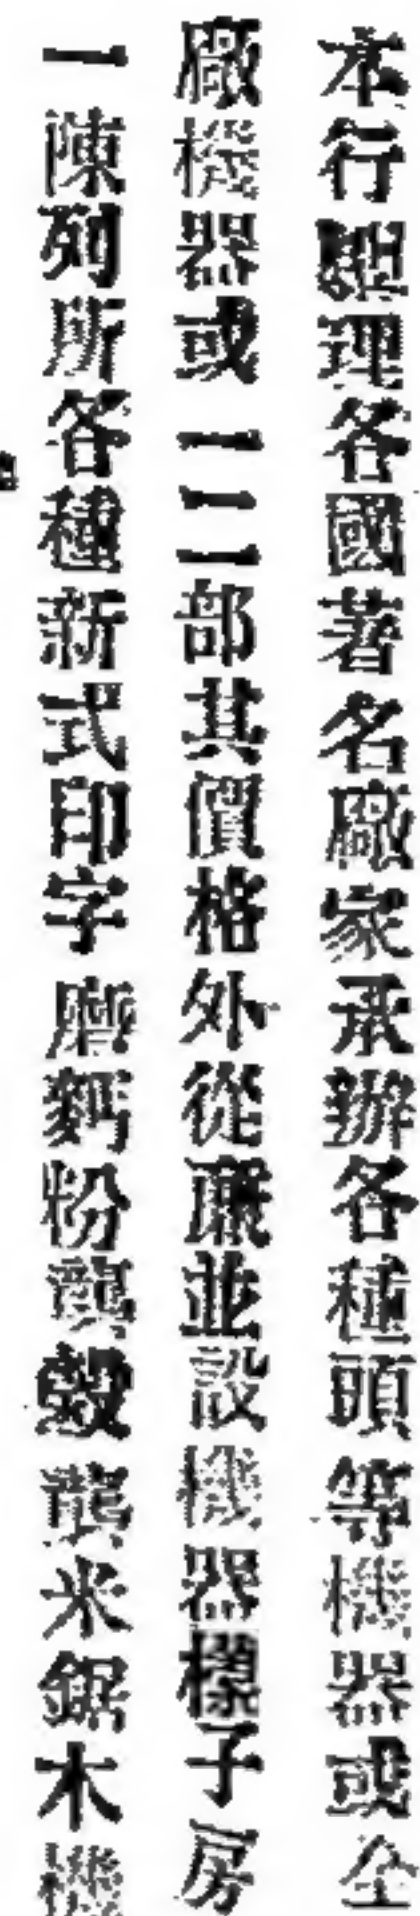 本行經理各國著名廠家承辦各種頭等機器或全
廠機器或一二部其價格外從廉並設機器樣子房
一陳列所各種新式印字磨麪粉礱穀礱米鋸木機